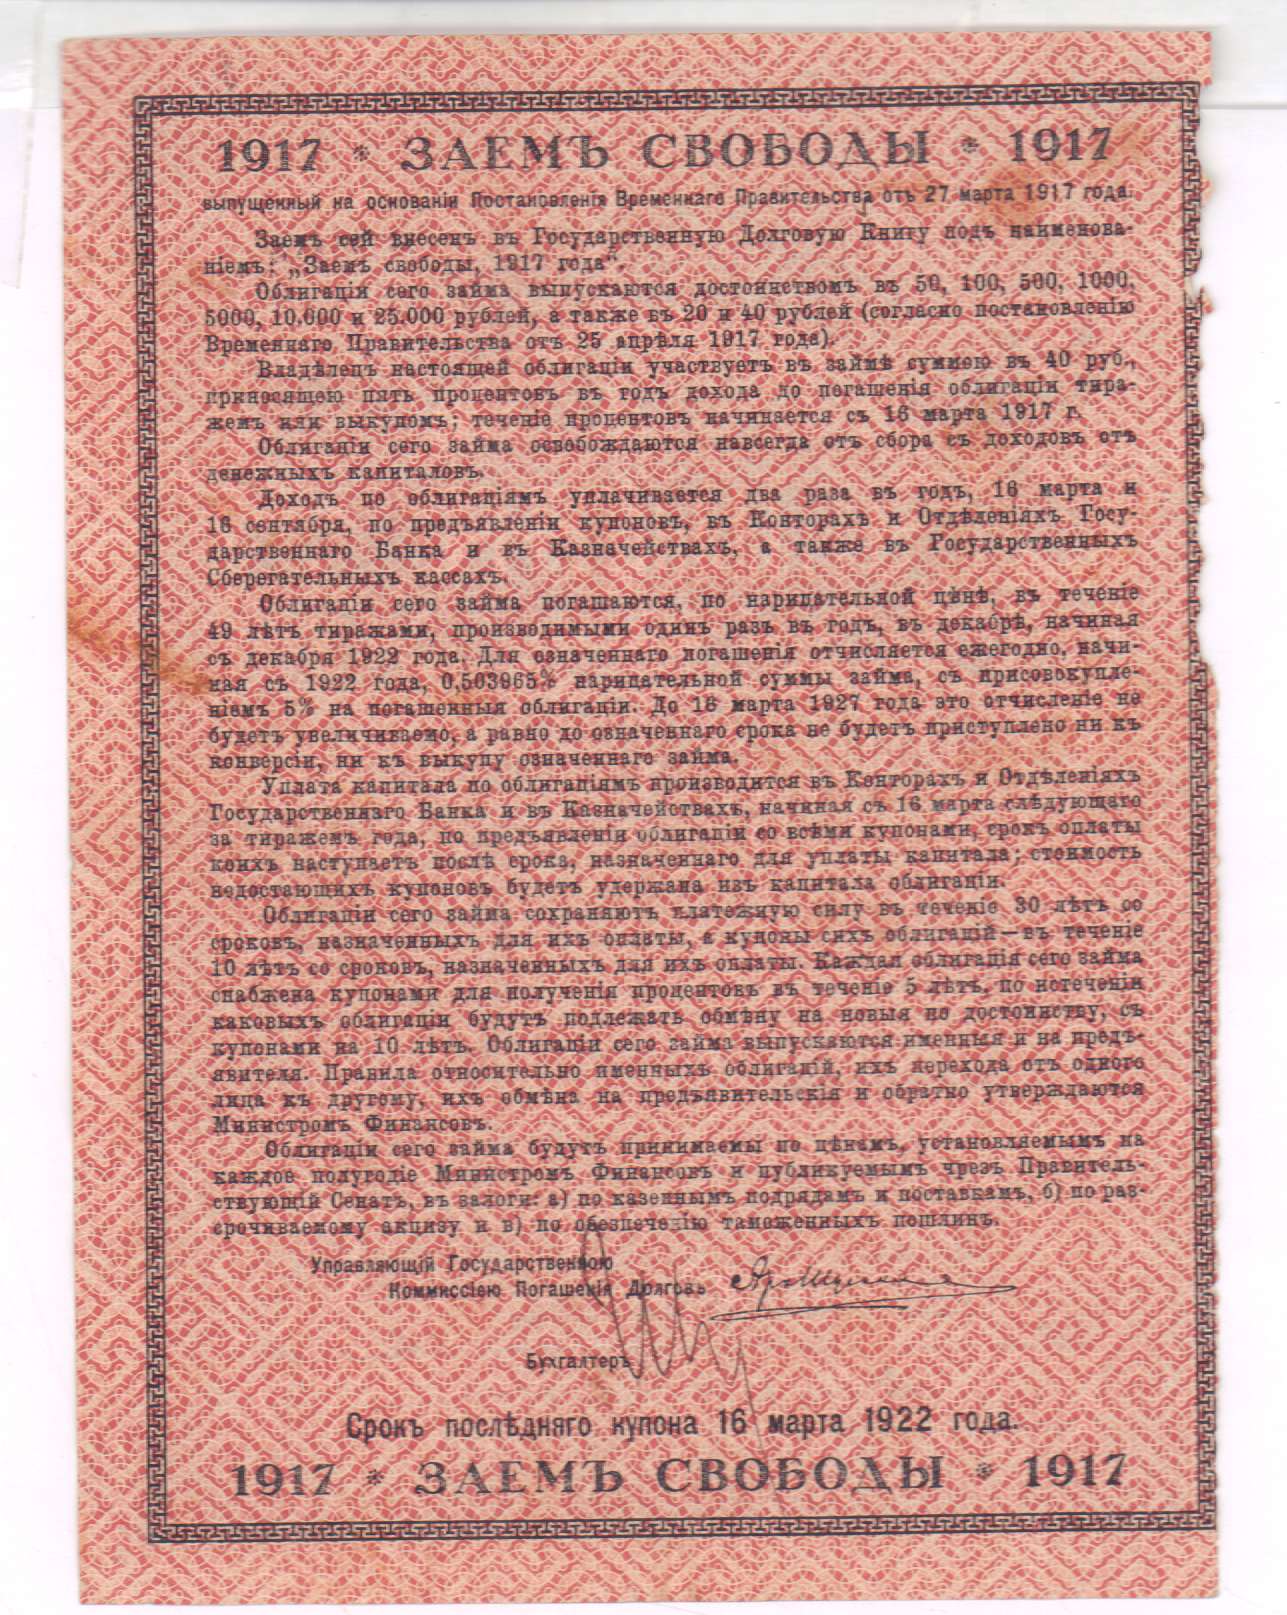 1917 * ЗАЕМЪ СВОБОДЫ * 1917
выпущенный на основаніи Постановленія Временнаго Правительства отъ 27 марта 1917 года.
Заемъ сей внесенъ въ Государственную Долговую Книгу подъ наименова-
ніемъ: „Заемъ свободы, 1917 года“.
Облигаціи сего займа выпускаются достоинствомъ въ 50, 100, 500, 1000,
5000, 10.000 и 25.000 рублей, а также въ 20 и 40 рублей (согласно постановленію
Временнаго Правительства отъ 25 апрѣля 1917 года).
Владѣлецъ настоящей облигаціи участвуетъ въ займѣ суммою въ 40 руб.,
приносящею пять процентовъ въ годъ дохода до погашенія облигаціи тира-
жемъ или выкупомъ; теченіе процентовъ начинается съ 16 марта 1917 г.
Облигаціи сего займа освобождаются навсегда отъ сбора съ доходовъ отъ
денежныхъ капиталовъ.
Доходъ по облигаціямъ уплачивается два раза въ годъ, 16 марта и
16 сентября, по предъявленіи купоновъ, въ Конторахъ и Отдѣленіяхъ Госу-
дарственнаго Банка и въ Казначействахъ, а также въ Государственныхъ
Сберегательныхъ кассахъ.
Облигаціи сего займа погашаются, по нарицательной цѣнѣ, въ теченіе
49 лѣтъ тиражами, производимыми одинъ разъ въ годъ, въ декабрѣ, начиная
съ декабря 1922 года. Для означеннаго погашенія отчисляется ежегодно, начи-
ная съ 1922 года, 0,503965% нарицательной суммы займа, съ присовокупле-
ніемъ 5% на погашенныя облигаціи. До 16 марта 1927 года это отчисленіе не
будетъ увеличиваемо, а равно до означеннаго срока не будетъ приступлено ни къ
конверсіи, ни къ выкупу означеннаго займа.
Уплата капитала по облигаціямъ производится въ Конторахъ и Отдѣленіяхъ
Государственнаго Банка и въ Казначействахъ, начиная съ 16 марта слѣдующаго
за тиражемъ года, по предъявленіи облигаціи со всѣми купонами, срокъ оплаты
коихъ наступаетъ послѣ срока, назначеннаго для уплаты капитала; стоимость
недостающихъ купоновъ будетъ удержана изъ капитала облигаціи.
Облигаціи сего займа сохраняютъ платежную силу въ теченіе 30 лѣтъ со
сроковъ, назначенныхъ для ихъ оплаты, а купоны сихъ облигацій—въ теченіе
10 лѣтъ со сроковъ, назначенныхъ для ихъ оплаты. Каждая облигація сего займа
снабжена купонами для полученія процентовъ въ теченіе 5 лѣтъ, по истеченіи
каковыхъ облигаціи будутъ подлежать обмѣну на новыя по достоинству, съ
купонами на 10 лѣтъ. Облигаціи сего займа выпускаются именныя и на предъ-
явителя. Правила относительно именныхъ облигацій, ихъ перехода отъ одного
лица къ другому, ихъ обмѣна на предъявительскія и обратно утверждаются
Министромъ Финансовъ.
Облигаціи сего займа будутъ принимаемы по цѣнамъ, установляемымъ на
каждое полугодіе Министромъ Финансовъ и публикуемымъ чрезъ Правитель-
ствующій Сенатъ, въ залоги: а) по казеннымъ подрядамъ и поставкамъ, б) по раз-
срочиваемому акцизу и в) по обезпеченію таможенныхъ пошлинъ.
Управляющій Государственною
Коммиссіею Погашенія Долговъ
Бухгалтеръ
Срокъ послѣдняго купона 16 марта 1922 года.
1917 * ЗАЕМЪ СВОБОДЫ * 1917